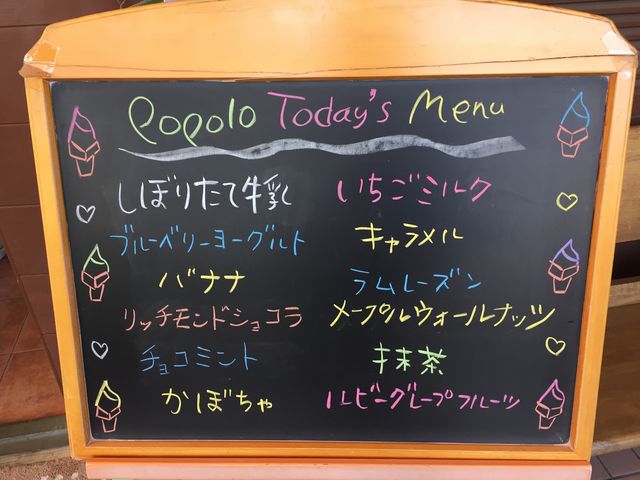 Popolo Today's Menu
しぼりたて牛乳
いちごミルク
ブルーベリーヨーグルト
キャラメル
バナナ
ラムレーズン
リッチモンドショコラ
メープルウォールナッツ
チョコミント
抹茶
かぼちゃ
ルビーグレープフルーツ